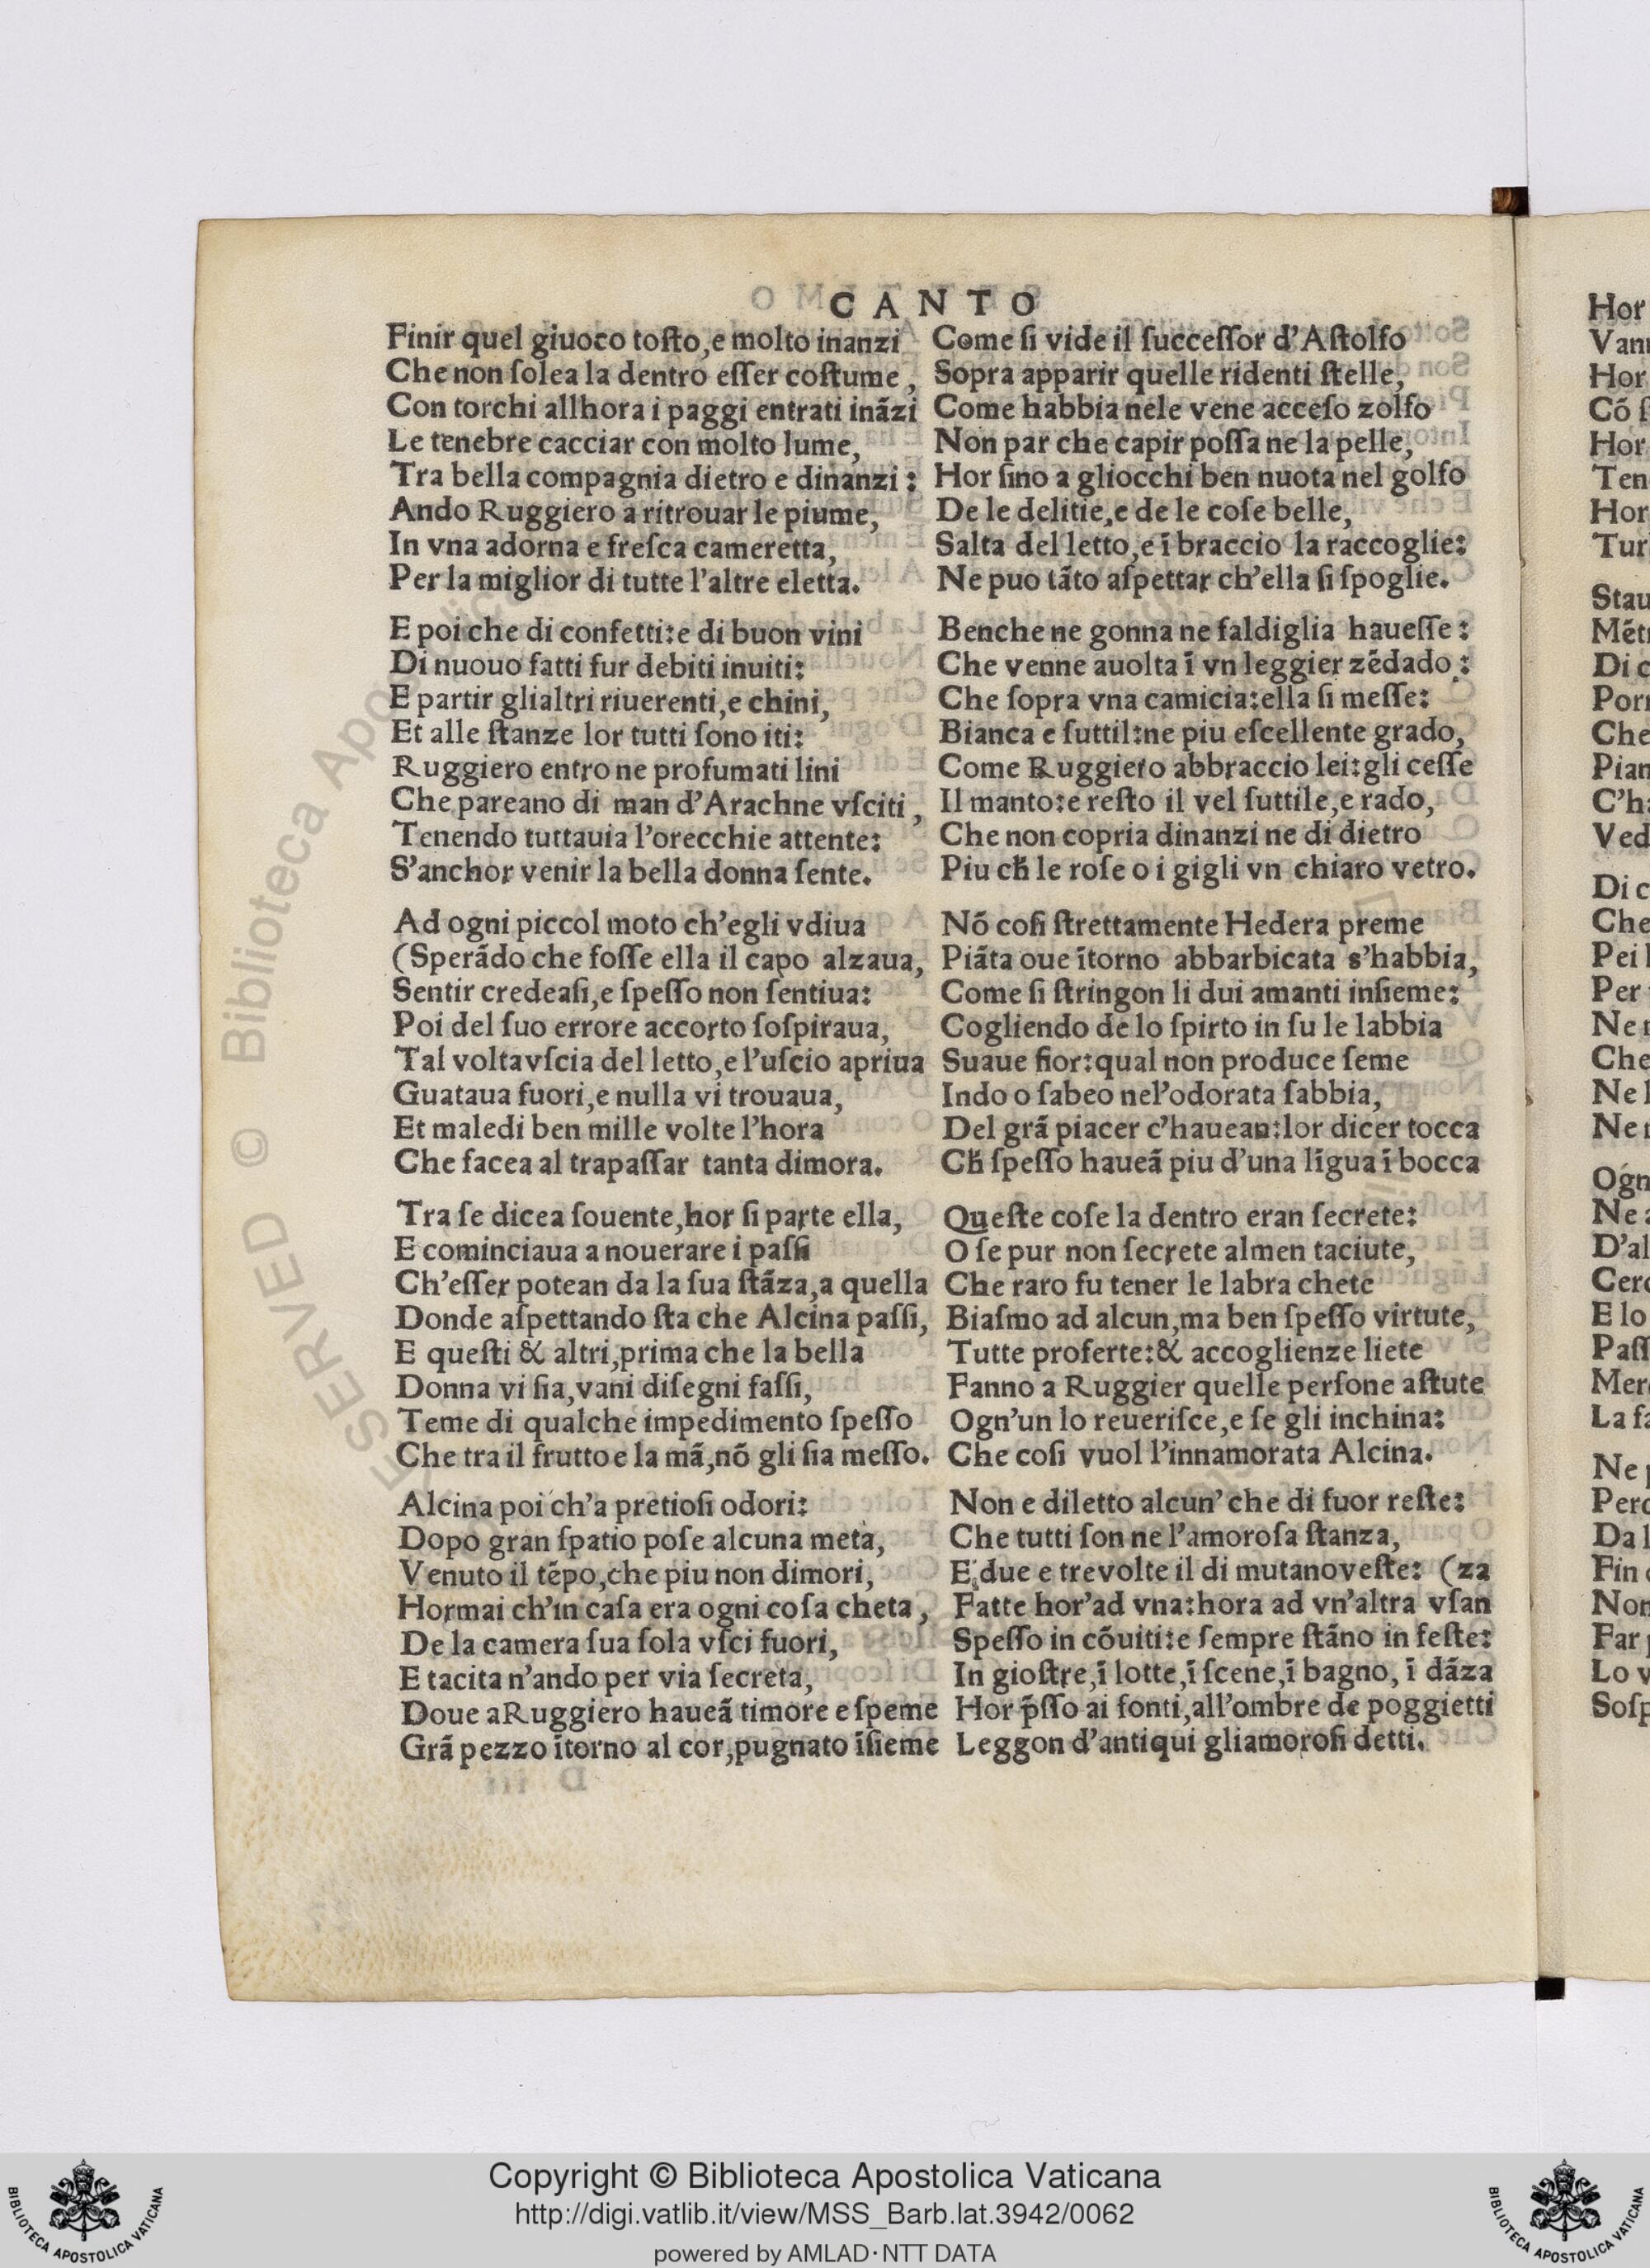 CANTO
Finir quel giuoco toſto,e molto inanzi
Che non ſolea la dentro eſſer coſtume,
Con torchi allhora i paggi entrati inãzi
Le tenebre cacciar con molto lume,
Tra bella compagnia dietro e dinanzi:
Ando Ruggiero a ritrouar le piume,
In vna adorna e freſca cameretta,
Per la miglior di tutte l'altre eletta.
E poi che di confetti:e di buon vini
Di nuouo fatti fur debiti inuiti:
E partir glialtri riuerenti,e chini,
Et alle ſtanze lor tutti ſono iti:
Ruggiero entro ne profumati lini
Che pareano di man d'Arachne vſciti,
Tenendo tuttauia l'orecchie attente:
S'anchor venir la bella donna ſente.
Ad ogni piccol moto ch'egli vdiua
(Sperãdo che foſſe ella il capo alzaua,
Sentir credeaſi,e ſpeſſo non ſentiua:
Poi del ſuo errore accorto ſoſpiraua,
Tal voltavſcia del letto,e l'uſcio apriua
Guataua fuori,e nulla vi trouaua,
Et maledi ben mille volte l'hora
Che facea al trapaſſar tanta dimora.
Tra ſe dicea ſouente,hor ſi parte ella,
E cominciaua a nouerare i paſſi
Ch'eſſer potean da la ſua ſtãza,a quella
Donde aſpettando ſta che Alcina paſſi,
E queſti & altri,prima che la bella
Donna vi ſia,vani diſegni faſſi,
Teme di qualche impedimento ſpeſſo
Che tra il frutto e la mã,nõ gli ſia meſſo.
Alcina poi ch'a pretioſi odori:
Dopo gran ſpatio poſe alcuna meta,
Venuto il tẽpo,che piu non dimori,
Hormai ch'in caſa era ogni coſa cheta,
De la camera ſua ſola vſci fuori,
E tacita n'ando per via ſecreta,
Doue aRuggiero haueã timore e ſpeme
Grã pezzo ĩtorno al cor,pugnato ĩſieme
Come ſi vide il ſucceſſor d'Aſtolfo
Sopra apparir quelle ridenti ſtelle,
Come habbia nele vene acceſo zolfo
Non par che capir poſſa ne la pelle,
Hor ſino a gliocchi ben nuota nel golfo
De le delitie,e de le coſe belle,
Salta del letto,e ĩ braccio la raccoglie:
Ne puo tãto aſpettar ch'ella ſi ſpoglie.
Benche ne gonna ne faldiglia haueſſe:
Che venne auolta ĩ vn leggier zẽdado:
Che ſopra vna camicia:ella ſi meſſe:
Bianca e ſuttil:ne piu eſcellente grado,
Come Ruggiero abbraccio lei:gli ceſſe
Il manto:e reſto il vel ſuttile,e rado,
Che non copria dinanzi ne di dietro
Piu cħ le roſe o i gigli vn chiaro vetro.
Nõ coſi ſtrettamente Hedera preme
Piãta oue ĩtorno abbarbicata s'habbia,
Come ſi ſtringon li dui amanti inſieme:
Cogliendo de lo ſpirto in ſu le labbia
Suaue fior:qual non produce ſeme
Indo o ſabeo nel'odorata ſabbia,
Del grã piacer c'hauean:lor dicer tocca
Cħ ſpeſſo haueã piu d'una lĩgua ĩ bocca
Queſte coſe la dentro eran ſecrete:
O ſe pur non ſecrete almen taciute,
Che raro fu tener le labra chete
Biaſmo ad alcun,ma ben ſpeſſo virtute,
Tutte proferte:& accoglienze liete
Fanno a Ruggier quelle perſone aſtute
Ogn'un lo reueriſce,e ſe gli inchina:
Che coſi vuol l'innamorata Alcina.
Non e diletto alcun' che di fuor reſte:
Che tutti ſon ne l'amoroſa ſtanza,
E due e trevolte il di mutanoveſte: (za
Fatte hor'ad vna:hora ad vn'altra vſan
Speſſo in cõuiti:e ſempre ſtãno in feſte:
In gioſtre,ĩ lotte,ĩ ſcene,ĩ bagno, ĩ dãza
Hor p̃ſſo ai fonti,all'ombre de poggietti
Leggon d'antiqui gliamoroſi detti.
Hor
Hor
Cõ
Hor
Ten
Hor
Tur
Di c
Che
C'h
Ved
Di c
Che
Pei
Per
Ne
Che
Ne
Ne
Ogn
Ne
D'al
Cerc
E lo
Paſſ
Mer
La fa
Ne
Perc
Da
Fin
Non
Far
Lo v
Soſp
RESERVED © Biblioteca Apo
Copyright © Biblioteca Apostolica Vaticana
http://digi.vatlib.it/view/MSS_Barb.lat.3942/0062
powered by AMLAD·NTT DATA
BIBLIOTECA APOSTOLICA VATICANA
BIBLIOTECA APOSTOLICA VATICANA